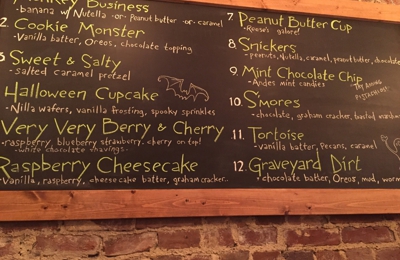 Monkey Business
-banana w/ Nutella -or- Peanut butter -or- caramel
2. Cookie Monster
-Vanilla batter, Oreos, chocolate topping
3 Sweet & Salty
-salted caramel pretzel
Halloween Cupcake
-Nilla wafers, vanilla frosting, spooky sprinkles
Very Very Berry & Cherry
-raspberry, blueberry, strawberry. cherry on top!
-white chocolate shavings.
Raspberry Cheesecake
-Vanilla, raspberry, cheesecake batter, graham cracker..
7. Peanut Butter Cup
-Reese's galore!
8. Snickers
-peanuts, Nutella, caramel, peanut butter, chocolate
9. Mint Chocolate Chip
-Andes mint candies
10. S'mores
-chocolate, graham cracker, toasted
11. Tortoise
-vanilla batter, Pecans, caramel
12. Graveyard Dirt
-chocolate batter, Oreos, mud, worm